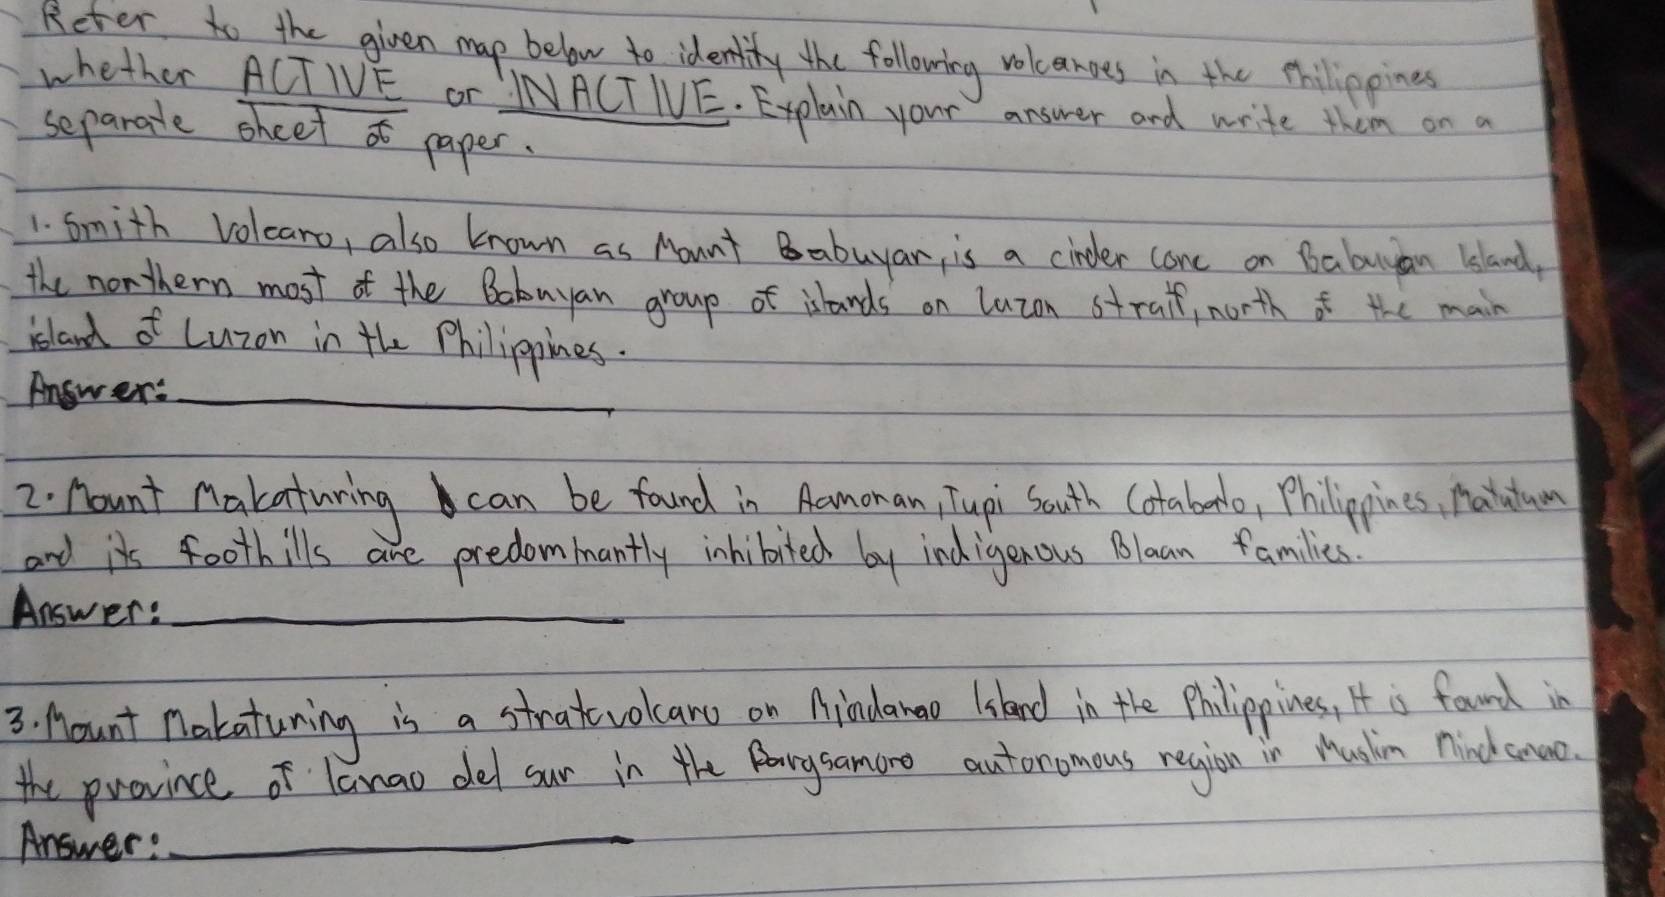 Refer to the given map below to identify the following volcanoes in the Philippines
whether ACTIVE or INACTIVE. Explain your answer and write them on a
separate sheet of paper.
1. Smith Volcano, also known as Mount Babuyan, is a cinder cone on Babuyan Island,
the northern most of the Babuyan group of islands on Luzon strait, north of the main
island of Luzon in the Philippines.
Answer:
2. Mount Makaturing can be found in Aamonan, Tupi South Cotabato, Philippines, Matutum
and its foothills are predominantly inhibited by indigenous Blaan families.
Answer:
3. Mount Makaturing is a stratovolcano on Mindanao Island in the Philippines, It is found in
the province of lanao del sur in the Bangsamoro autonomous region in Muslim Mindanao.
Answer: